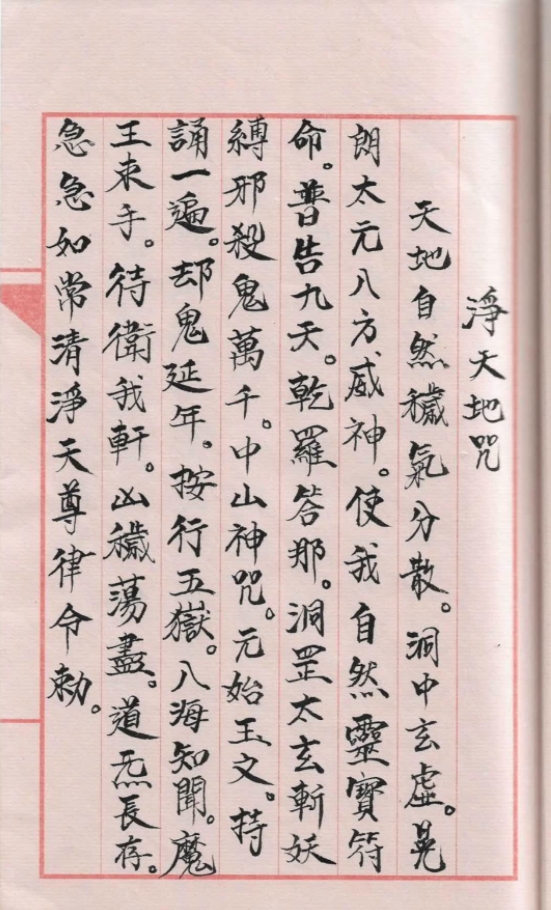 淨天地咒
天地自然穢氣分散。洞中玄虛。晃
朗太元八方威神。使我自然靈寶符
命。普告九天。乾羅答那。洞罡太玄斬妖
縛邪殺鬼萬千。中山神咒。元始玉文。持
誦一遍。却鬼延年。按行五獄。八海知聞。魔
王束手。待衛我軒。凶穢蕩盡。道炁長存。
急急如常清淨天尊律令勅。